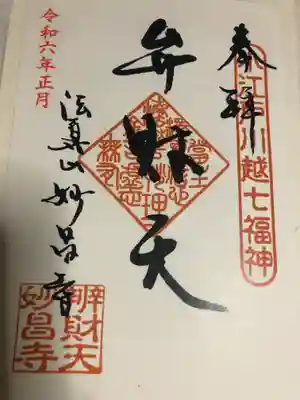 奉拝
小江戸川越七福神
弁財天
法眞山妙昌寺
令和六年正月
弁財天
妙昌寺